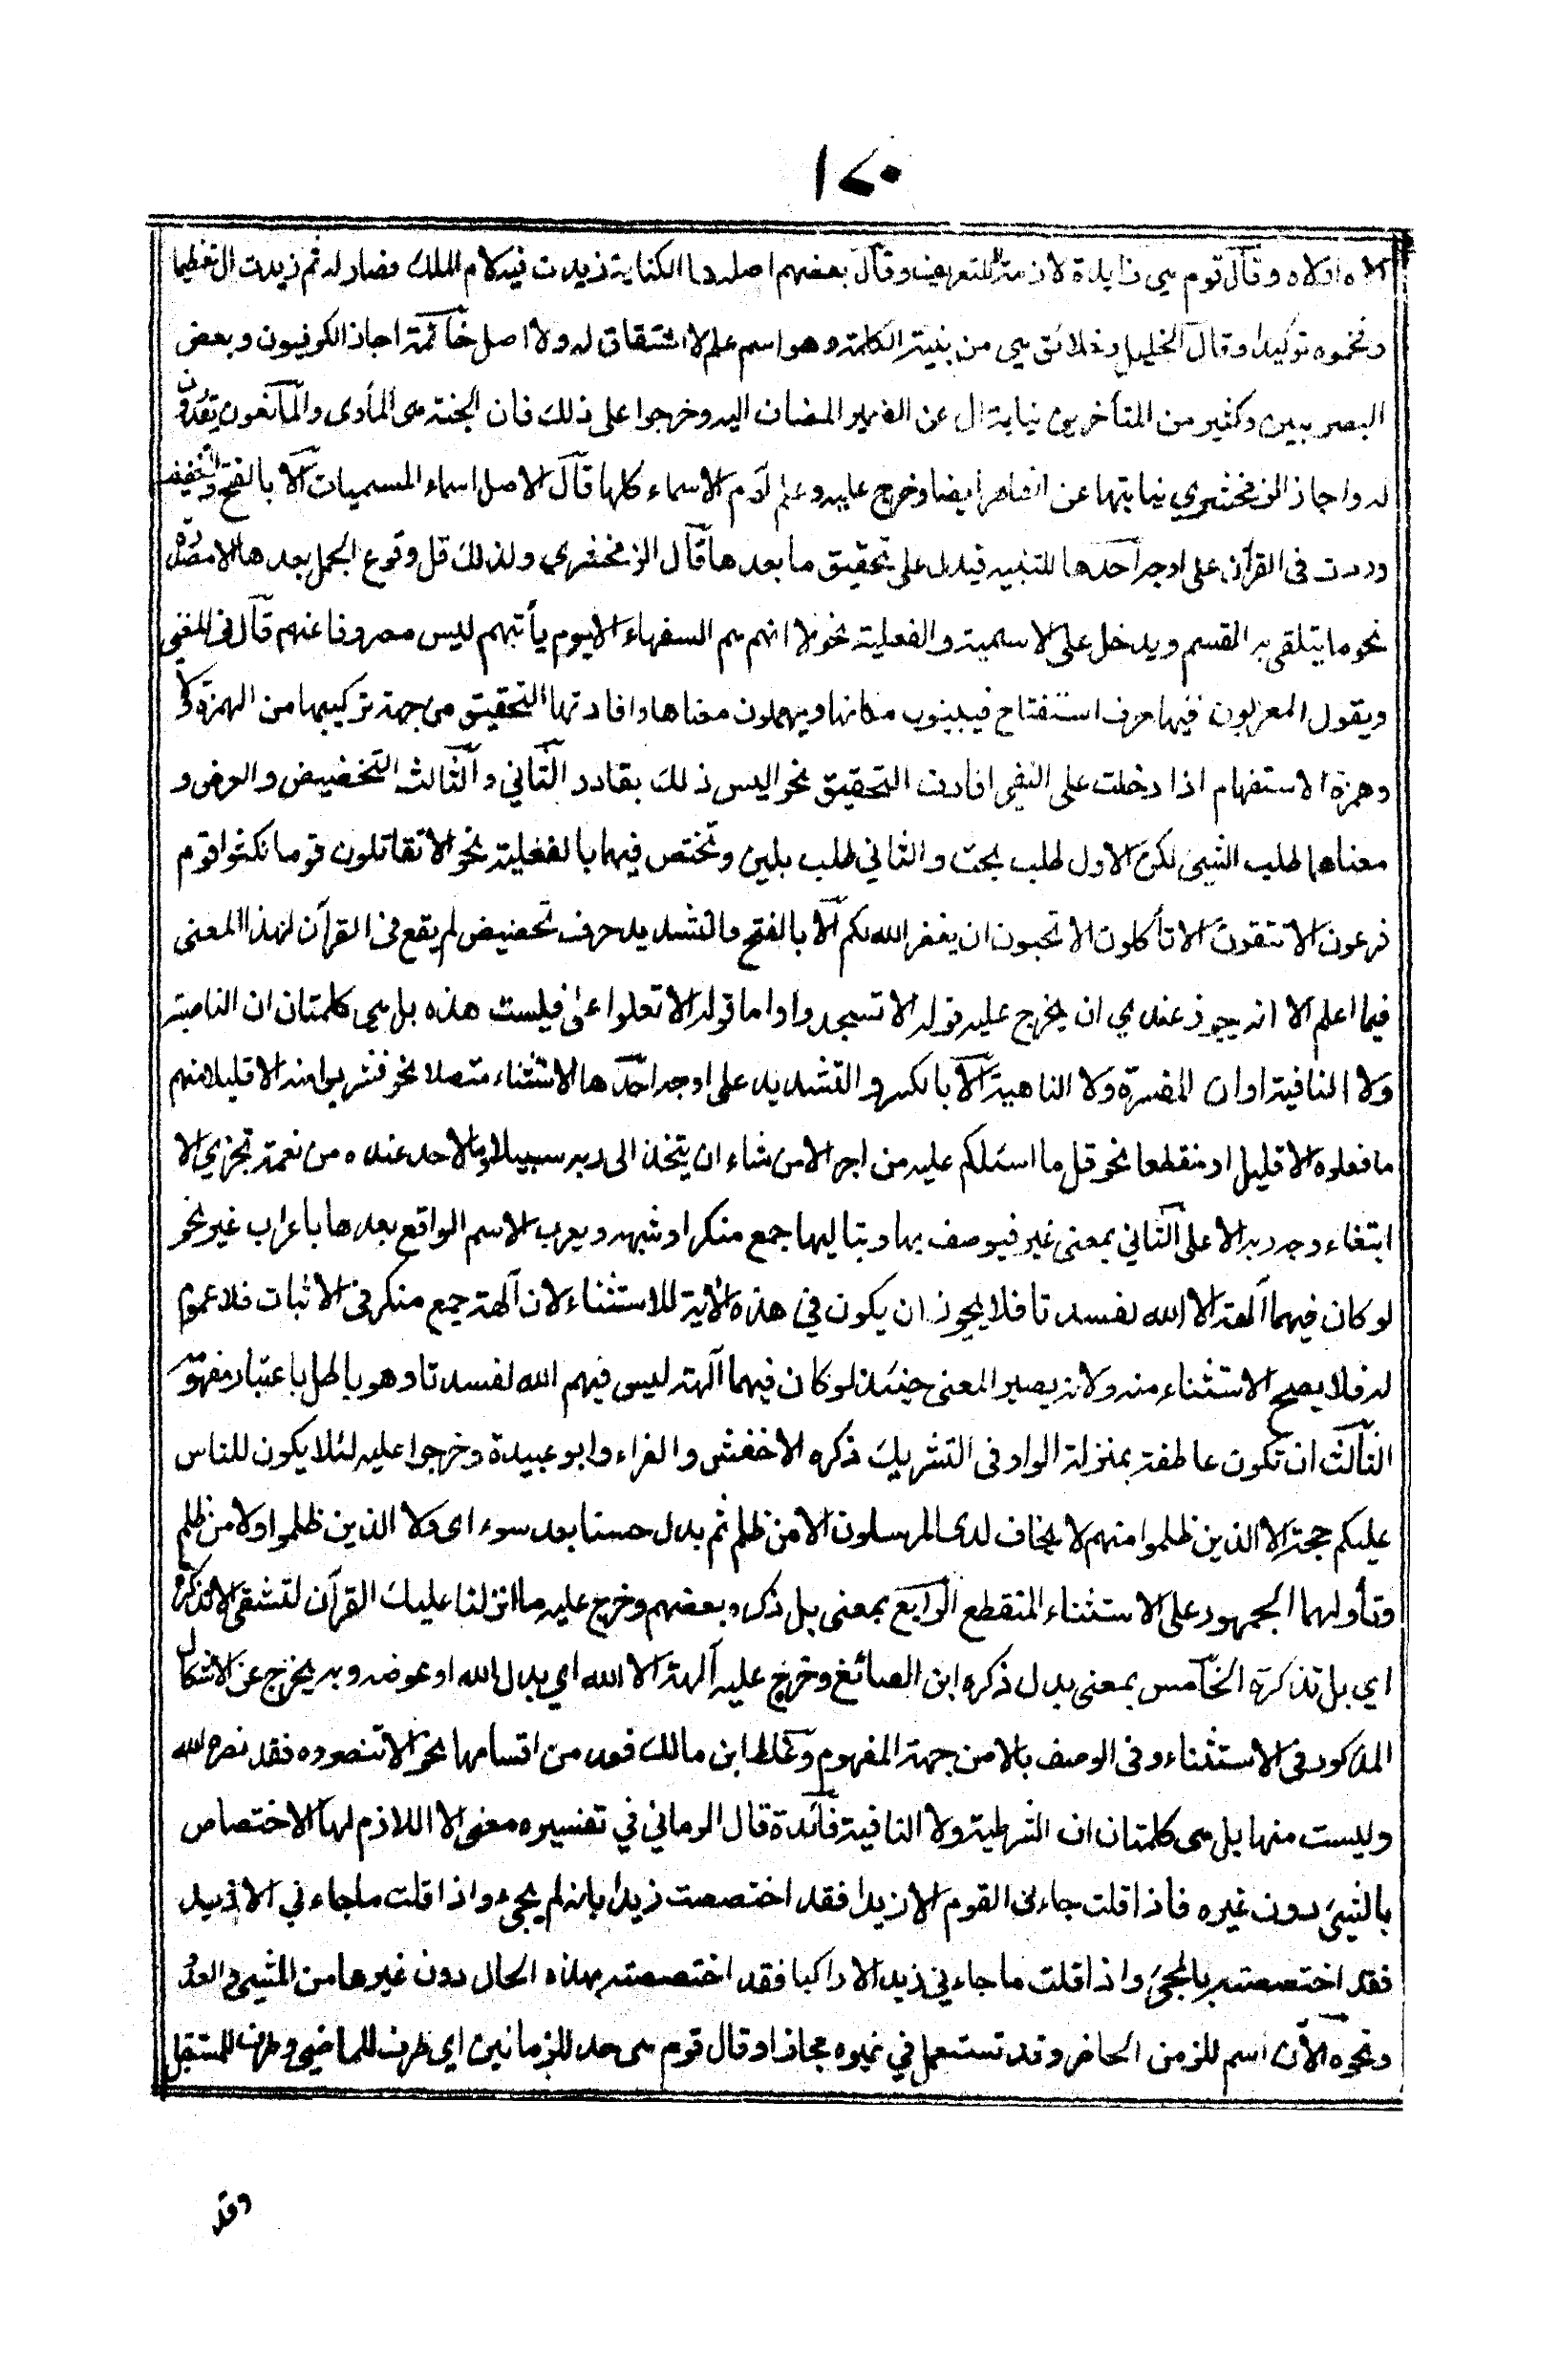 ١٧٠
الاه اولاه وقال قوم هي زايدة لازمة للتعريف وقال بعضهم اصله ها الكناية زيدت فيه لام الملك فصار له ثم زيدت ال تعظيما
وفخموه توكيدا وقال الخليل وخلائق هي من بنية الكلمة وهو اسم علم لا اشتقاق له ولا اصل خاتمة اجاز الكوفيون وبعض
البصريين وكثير من المتأخرين نيابة ال عن الضمير المضاف اليه وخرجوا على ذلك فان الجنة هي المأوى والمانعون يقدرون
له واجاز الزمخشري نيابتها عن الظاهر ايضا وخرج عليه وعلم آدم الاسماء كلها قال الاصل اسماء المسميات ألا بالفتح والتخفيف
وردت فى القرآن على اوجه احدها للتنبيه فيدل على تحقيق ما بعدها قال الزمخشري ولذلك قل وقوع الجمل بعدها الا مصدرة
نحو ما يتلقى به القسم ويدخل على الاسمية والفعلية نحو الا انهم هم السفهاء الا يوم يأتيهم ليس مصروفا عنهم قال فى المغنى
ويقول المعربون فيها حرف استفتاح فيبينون مكانها ويهملون معناها وافادتها التحقيق من جهة تركيبها من الهمزة ولا
وهمزة الاستفهام اذا دخلت على النفى افادت التحقيق نحو اليس ذلك بقادر الثاني والثالث التحضيض والعرض و
معناهما طلب الشيئ لكن الاول طلب بحث والثاني طلب بلين وتختص فيهما بالفعلية نحو الا تقاتلون قوما نكثوا قوم
فرعون الا تتقون الا تأكلون الا تحبون ان يغفر الله لكم ألا بالفتح والتشديد حرف تحضيض لم يقع فى القرآن لهذا المعنى
فيما اعلم الا انه يجوز عندي ان يخرج عليه قوله الا تسجدوا واما قوله الا تعلوا علىّ فليست هذه بل هي كلمتان ان الناصبة
ولا النافية او ان المفسرة ولا الناهية الا بالكسر والتشديد على اوجه احدها الاستثناء متصلا نحو فشربوا منه الا قليلا منهم
ما فعلوه الا قليل او منقطعا نحو قل ما اسئلكم عليه من اجر الا من شاء ان يتخذ الى ربه سبيلا وما لاحد عنده من نعمة تجزي الا
ابتغاء وجه ربه الاعلى الثاني بمعنى غير فيوصف بها وبتاليها جمع منكر او شبهه ويعرب الاسم الواقع بعدها باعراب غير نحو
لو كان فيهما آلهة الا الله لفسدتا فلا يجوز ان يكون في هذه الآية للاستثناء لان آلهة جمع منكر فى الاثبات فلا عموم
له فلا يصح الاستثناء منه ولانه يصير المعنى حينئذ لو كان فيهما آلهة ليس فيهم الله لفسدتا وهو باطل باعتبار مفهومه
الثالث ان تكون عاطفة بمنزلة الواو فى التشريك ذكره الاخفش والفراء وابو عبيدة وخرجوا عليه لئلا يكون للناس
عليكم حجة الا الذين ظلموا منهم لا يخاف لدى المرسلون الا من ظلم ثم بدل حسنا بعد سوء اى ولا الذين ظلموا ولا من ظلم
وتأولهما الجمهور على الاستثناء المنقطع الرابع بمعنى بل ذكره بعضهم وخرج عليه ما انزلنا عليك القرآن لتشقى الا تذكرة
اي بل تذكرة الخامس بمعنى بدل ذكره ابن الصائغ وخرج عليه آلهة الا الله اي بدل الله او عوضه وبه يخرج عن الاشكال
المذكور فى الاستثناء وفى الوصف بالا من جهة المفهوم وغلط ابن مالك فعد من اقسامها نحو الا تنصروه فقد نصره الله
وليست منها بل هى كلمتان ان الشرطية ولا النافية فائدة قال الرماني في تفسيره معنى الا اللازم لها الاختصاص
بالشيئ دون غيره فاذا قلت جاءنى القوم الا زيدا فقد اختصصت زيدا بانه لم يجئ واذا قلت ما جاءني الا زيد
فقد اختصصته بالمجئ واذا قلت ما جاءني زيد الا راكبا فقد اختصصته بهذه الحال دون غيرها من المشي والعدو
ونحوه الآن اسم للزمن الحاضر وقد تستعمل في غيره مجازا وقال قوم هى حد للزمانين اي ظرف للماضي وظرف للمستقبل
وقد